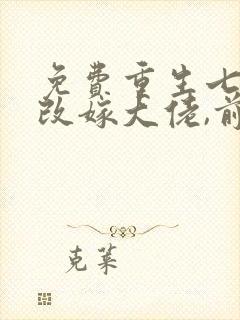 免费重生七
改嫁大佬,前
克莱